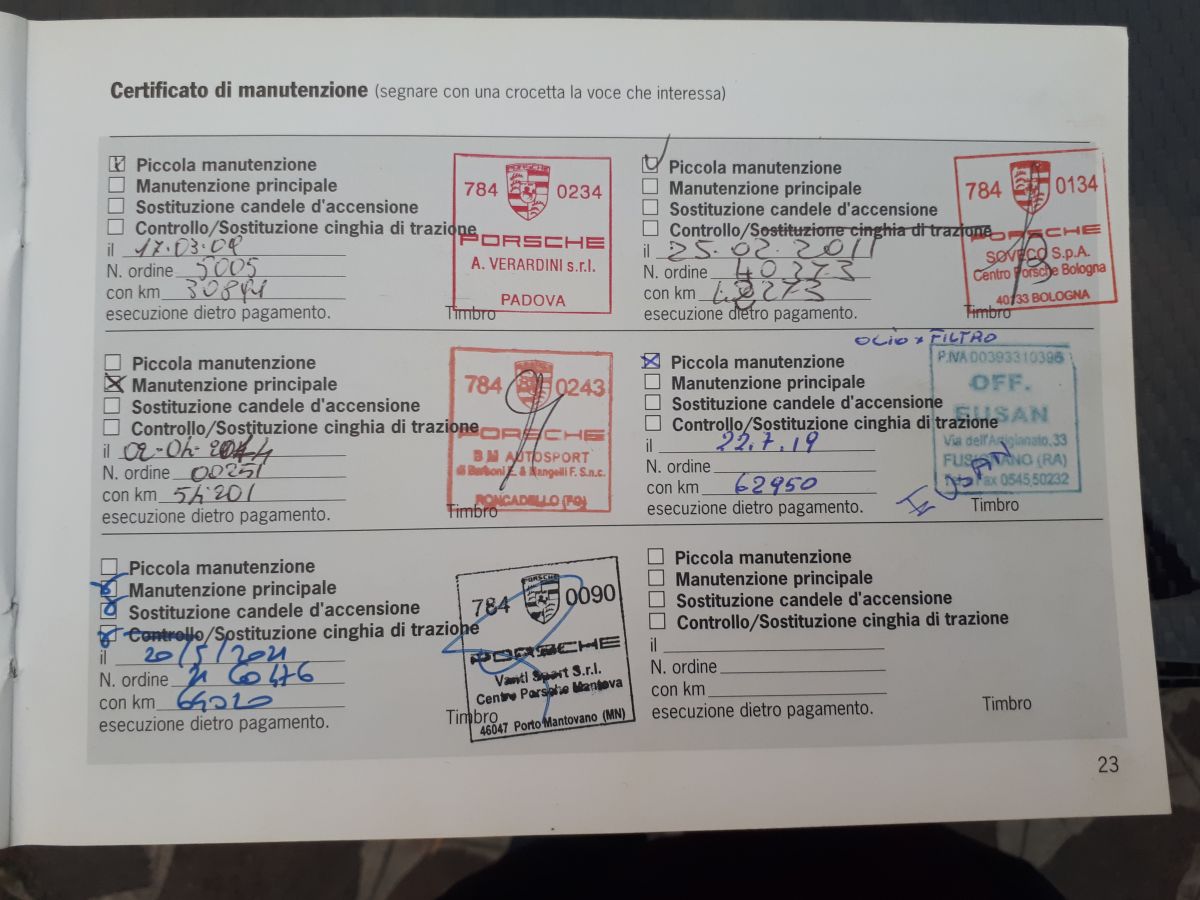 Certificato di manutenzione (segnare con una crocetta la voce che interessa)
Piccola manutenzione
Manutenzione principale
Sostituzione candele d'accensione
Controllo/Sostituzione cinghia di trazione
il 17.03.09
N. ordine 5005
con km
esecuzione dietro pagamento.
Timbro
784 0234
PORSCHE
A. VERARDINI s.r.l.
PADOVA
Piccola manutenzione
Manutenzione principale
Sostituzione candele d'accensione
Controllo/Sostituzione cinghia di trazione
il 25.02.2011
N. ordine 40273
con km
esecuzione dietro pagamento.
Timbro
784 0134
PORSCHE
SOVECO S.p.A.
Centro Porsche Bologna
40133 BOLOGNA
Piccola manutenzione
Manutenzione principale
Sostituzione candele d'accensione
Controllo/Sostituzione cinghia di trazione
il 02-04-
N. ordine 00251
con km 54.201
esecuzione dietro pagamento.
Timbro
784 0243
PORSCHE
B M AUTOSPORT
di Barboni E. & Mangelli F. S.n.c.
RONCADELLO (FO)
OLIO + FILTRO
Piccola manutenzione
Manutenzione principale
Sostituzione candele d'accensione
Controllo/Sostituzione cinghia di trazione
il 22.7.19
N. ordine
con km 62950
esecuzione dietro pagamento.
Timbro
P.IVA 00393310396
OFF.
EUSAN
Via dell'Artigianato, 33
FUSIGNANO (RA)
Fax 0545,50232
EUSAN
Piccola manutenzione
Manutenzione principale
Sostituzione candele d'accensione
Controllo/Sostituzione cinghia di trazione
il 20/5/2021
N. ordine 21 60476
con km 64020
esecuzione dietro pagamento.
Timbro
PORSCHE
784 0090
PORSCHE
Vanti Sport S.r.l.
Centro Porsche Mantova
46047 Porto Mantovano (MN)
Piccola manutenzione
Manutenzione principale
Sostituzione candele d'accensione
Controllo/Sostituzione cinghia di trazione
il
N. ordine
con km
esecuzione dietro pagamento.
Timbro
23